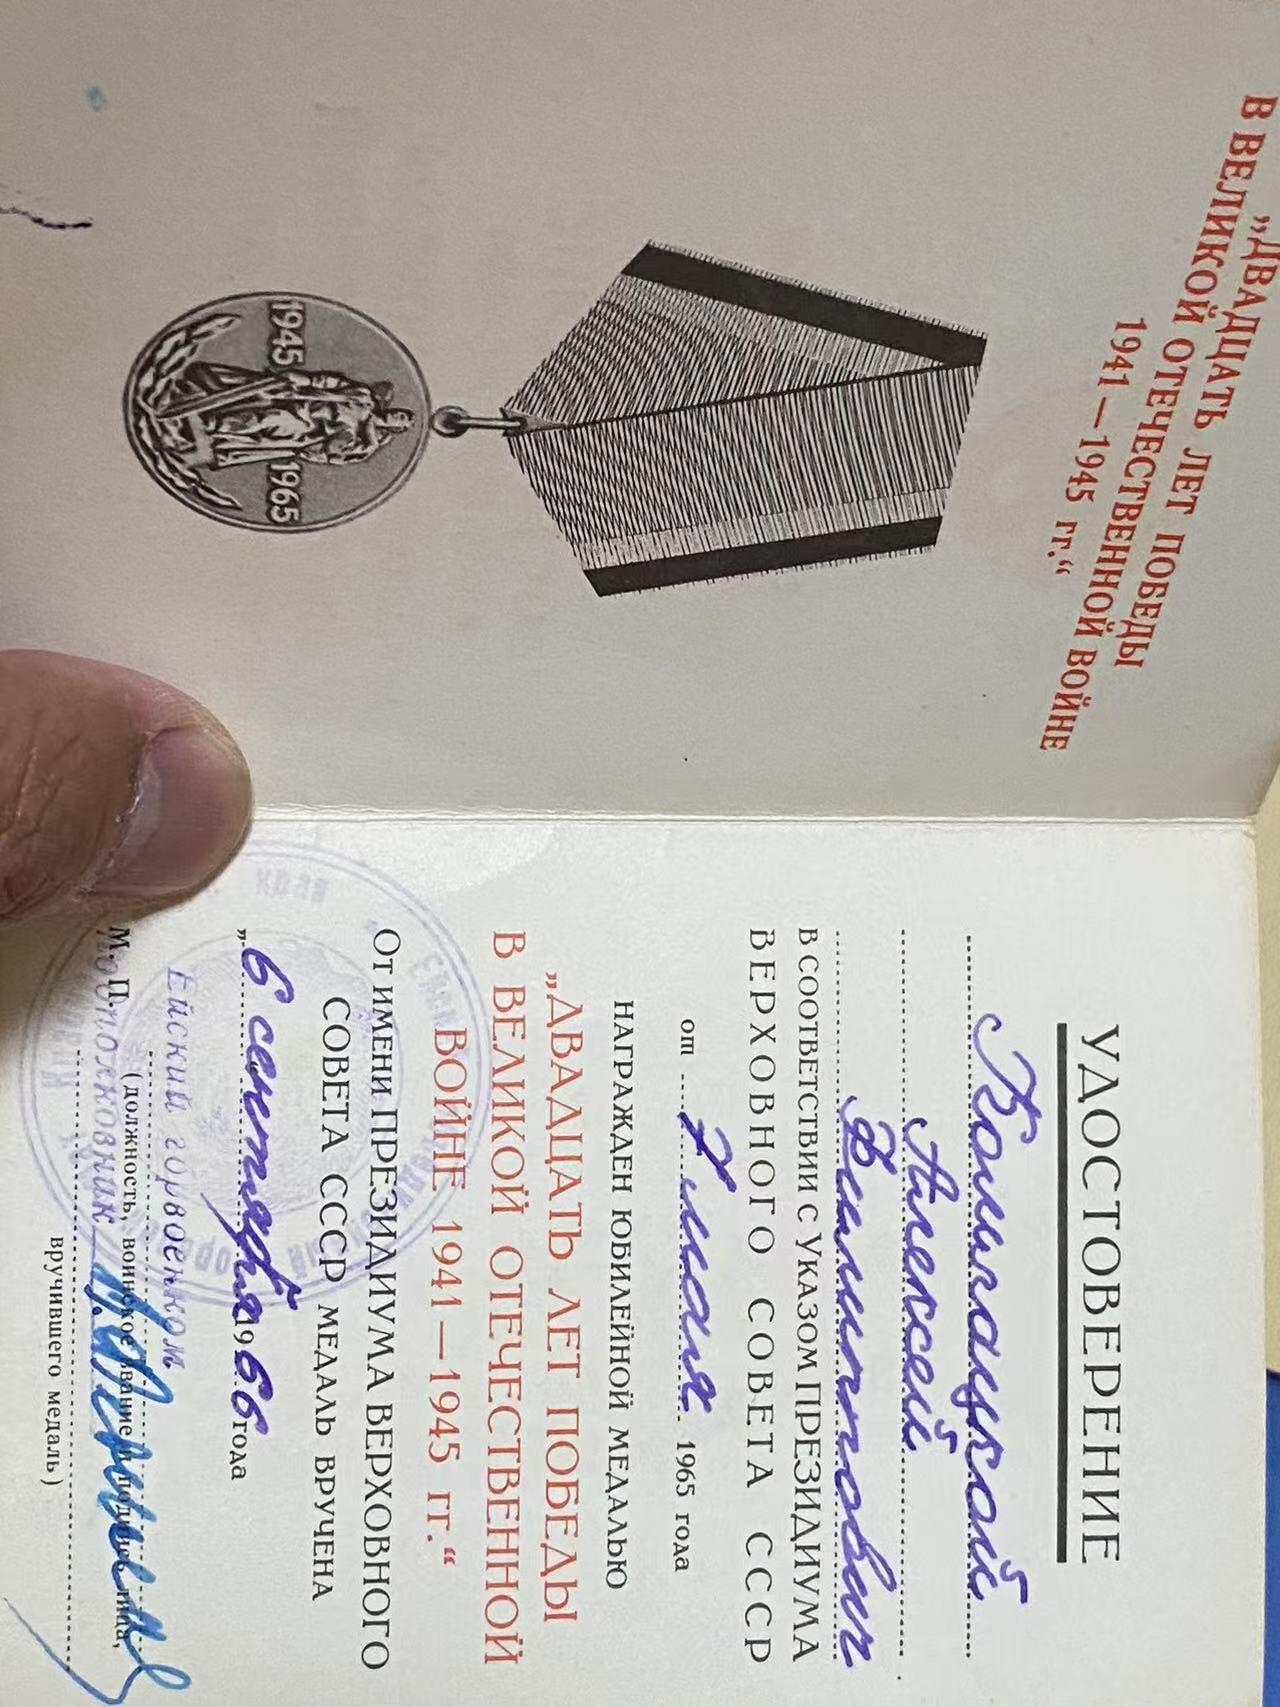 „ДВАДЦАТЬ ЛЕТ ПОБЕДЫ
В ВЕЛИКОЙ ОТЕЧЕСТВЕННОЙ ВОЙНЕ
1941—1945 гг.“
1945 1965
УДОСТОВЕРЕНИЕ
Алексей
Филиппович
В СООТВЕТСТВИИ С УКАЗОМ ПРЕЗИДИУМА
ВЕРХОВНОГО СОВЕТА СССР
от 7 мая 1965 года
НАГРАЖДЕН ЮБИЛЕЙНОЙ МЕДАЛЬЮ
„ДВАДЦАТЬ ЛЕТ ПОБЕДЫ
В ВЕЛИКОЙ ОТЕЧЕСТВЕННОЙ
ВОЙНЕ 1941—1945 гг.“
ОТ ИМЕНИ ПРЕЗИДИУМА ВЕРХОВНОГО
СОВЕТА СССР МЕДАЛЬ ВРУЧЕНА
„6 сентября 1966 года
Ейский горвоенком
М. П. (должность, воинское звание и подпись лица,
подполковник
вручившего медаль)